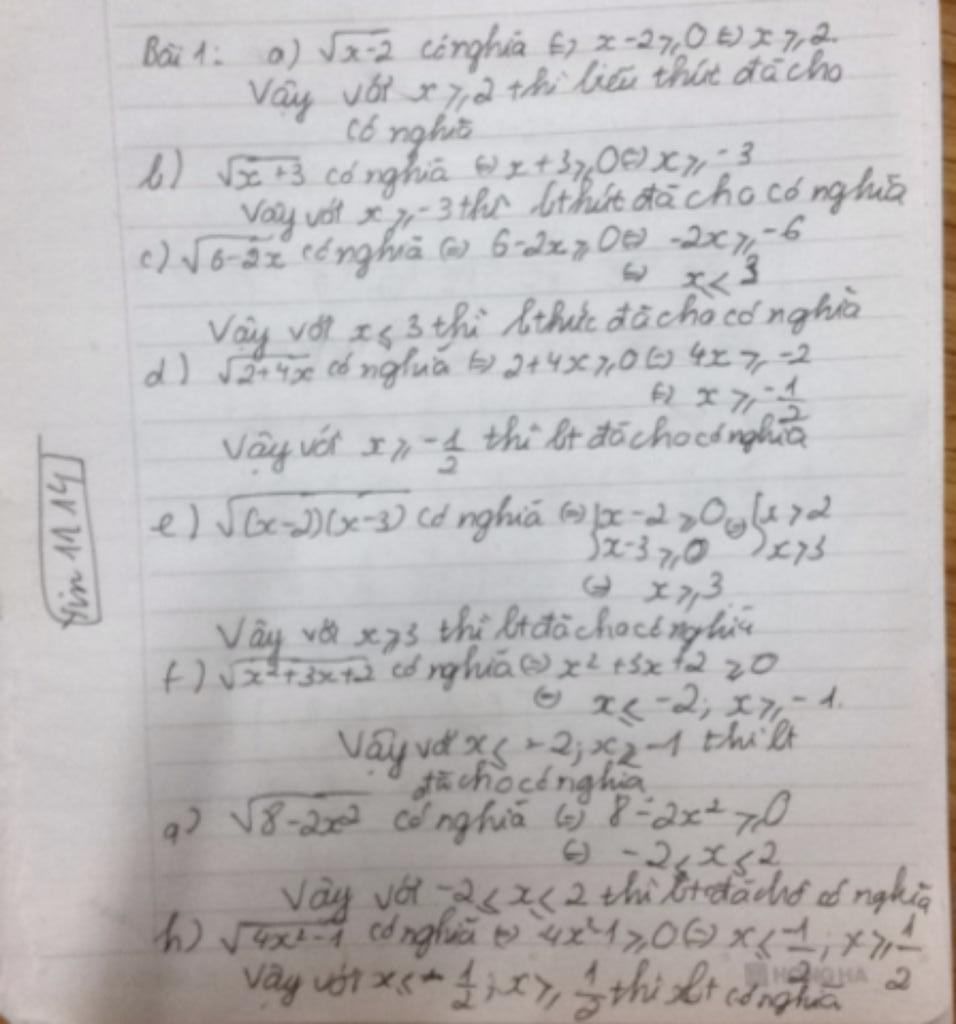 Bài 1: a) √x-2 có nghĩa ⇔ x-2 ≥ 0 ⇔ x ≥ 2.
Vậy với x ≥ 2 thì biểu thức đã cho
có nghĩa
b) √x+3 có nghĩa ⇔ x+3 ≥ 0 ⇔ x ≥ -3
Vậy với x ≥ -3 thì bthức đã cho có nghĩa
c) √6-2x có nghĩa ⇔ 6-2x ≥ 0 ⇔ -2x ≥ -6
⇔ x ≤ 3
Vậy với x ≤ 3 thì bthức đã cho có nghĩa
d) √2+4x có nghĩa ⇔ 2+4x ≥ 0 ⇔ 4x ≥ -2
⇔ x ≥ -1/2
Vậy với x ≥ -1/2 thì bt đã cho có nghĩa
e) √(x-2)(x-3) có nghĩa ⇔ { x-2 ≥ 0 ⇔ { x ≥ 2
{ x-3 ≥ 0 { x ≥ 3
⇔ x ≥ 3
Vậy với x ≥ 3 thì bt đã cho có nghĩa
f) √x²+3x+2 có nghĩa ⇔ x²+3x+2 ≥ 0
⇔ x ≤ -2; x ≥ -1.
Vậy với x ≤ -2; x ≥ -1 thì bt
đã cho có nghĩa
g) √8-2x² có nghĩa ⇔ 8-2x² ≥ 0
⇔ -2 ≤ x ≤ 2
Vậy với -2 ≤ x ≤ 2 thì bt đã cho có nghĩa
h) √4x²-1 có nghĩa ⇔ 4x²-1 ≥ 0 ⇔ x ≤ -1/2; x ≥ 1/2
Vậy với x ≤ -1/2; x ≥ 1/2 thì bt có nghĩa
HONG HA
yin 11 14